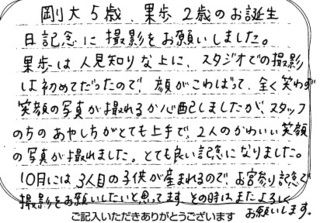 剛大5歳、果歩2歳のお誕生
日記念に撮影をお願いしました。
果歩は人見知りな上に、スタジオでの撮影
は初めてだったので、顔がこわばって、全く笑わず
笑顔の写真が撮れるか心配しましたが、スタッフ
のちのあやしがとても上手で、2人のかわいい笑顔
の写真が撮れました。とても良い記念になりました。
10月には3人目の子供が産まれるので、お宮参り記念で
撮影をお願いしたいと思ってます。その時はまたよろしく
お願いします。
ご記入いただきありがとうございます